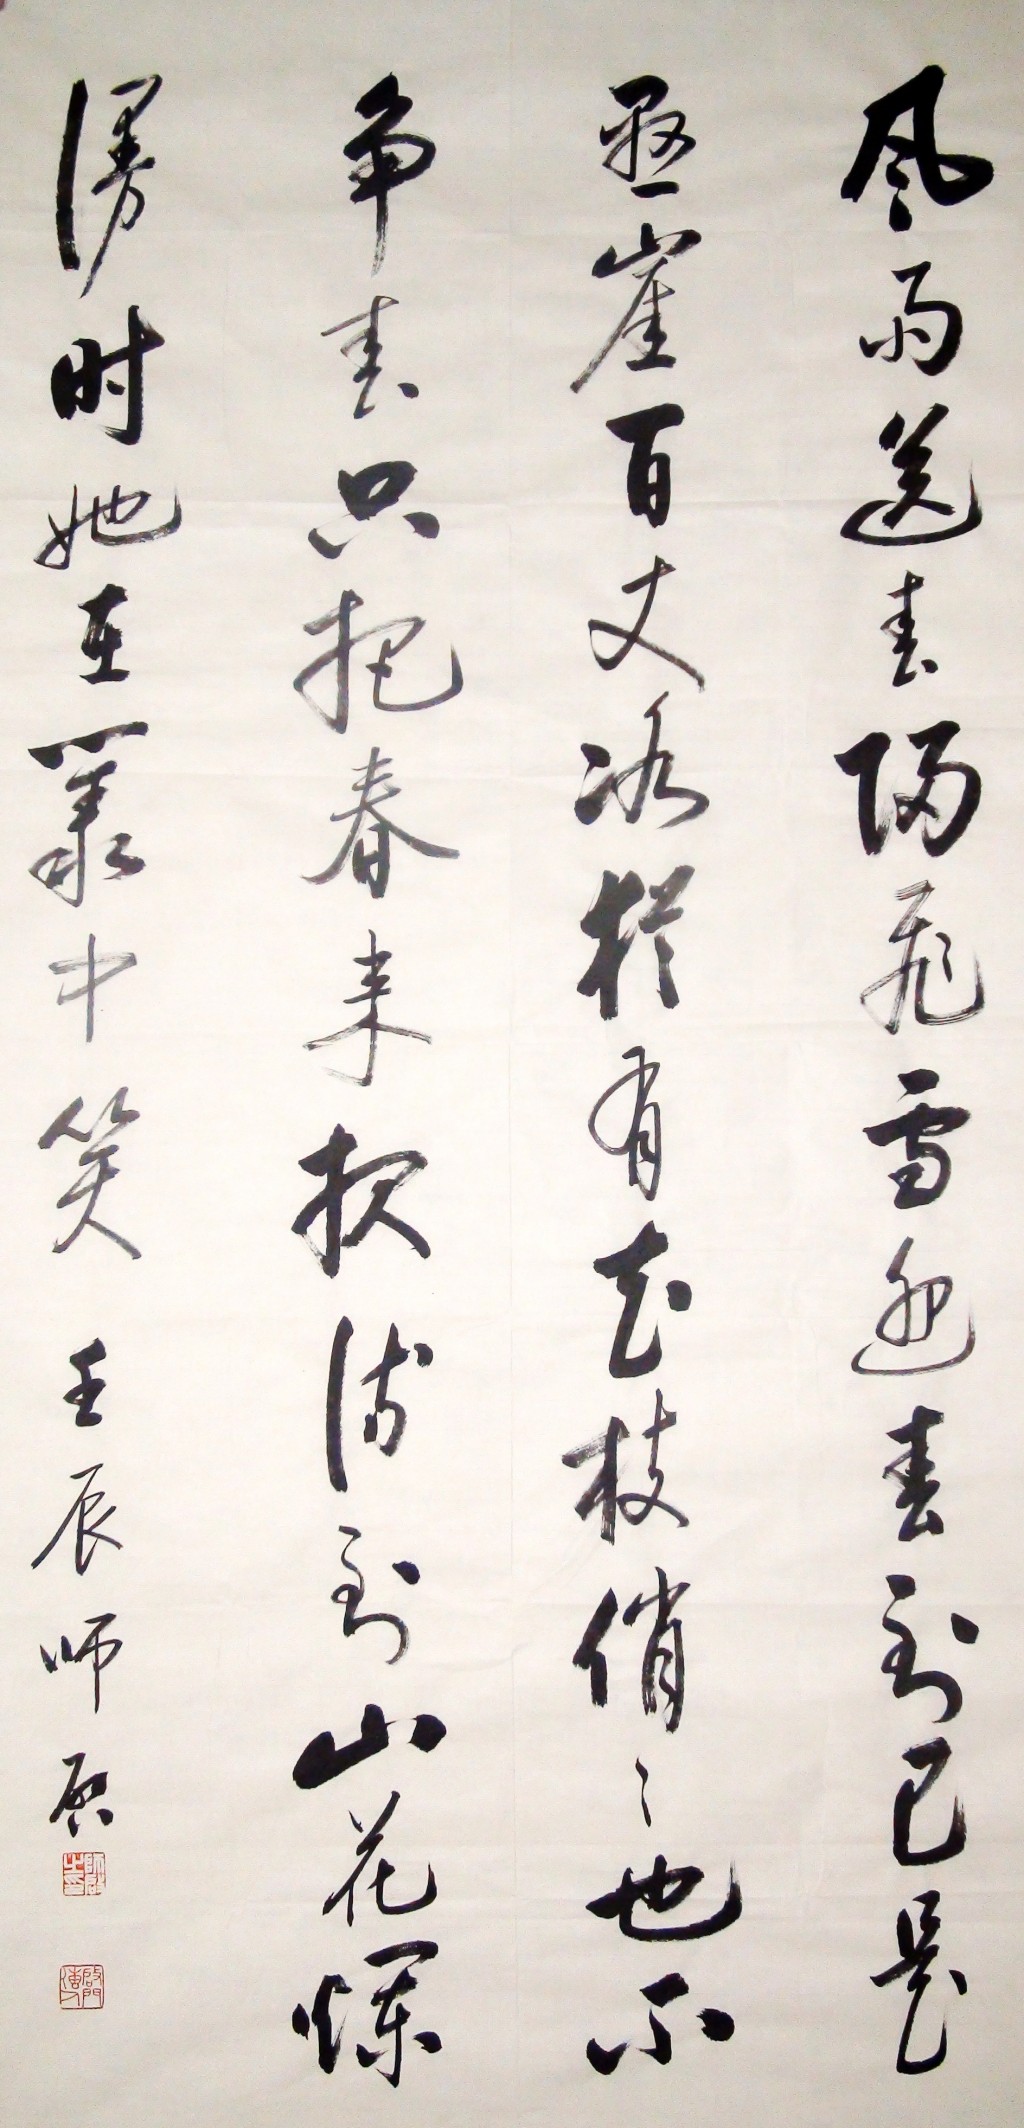 风雨送春归飛雪迎春到已是
悬崖百丈冰犹有花枝俏〻也不
争春只把春来报待到山花爛
漫时她在叢中笑 壬辰 师启
師啟之印